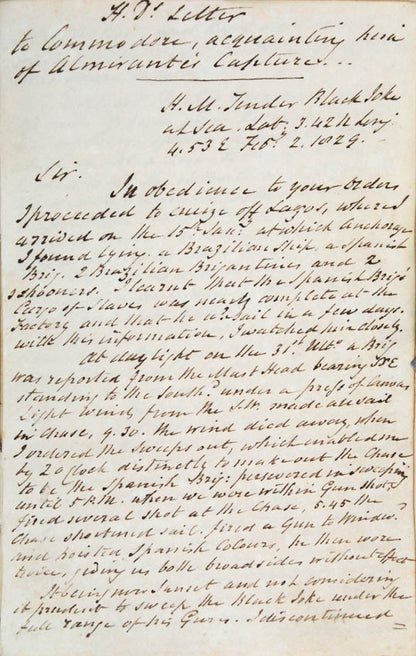 H. Ds. Letter
to Commodore, acquainting him
of Almirante's Capture...
H. M. Tender Black Joke
at Sea. Lat: 3.42 N Long
4.53 E Feby. 2. 1829.
Sir.
In obedience to your Orders
I proceeded to cruize off Lagos, where I
arrived on the 15th. Jany. at which Anchorage
I found lying, a Brazilian Ship, a Spanish
Brig, 2 Brazilian Brigantines, and 2
Schooners. I learnt that the Spanish Brig's
Cargo of Slaves was nearly complete at the
Factory, and that he wd. sail in a few days.
with this information, I watched him closely.
At day light on the 31st. Ulto. a Brig
was reported from the Mast Head bearing
standing to the Southd. under a press of Canvas
Light Winds, from the S.W. made all sail
in chase, 9.30. the wind died away, when
I ordered the sweeps out, which enabled me
by 2 o'clock distinctly to make out the Chase
to be the Spanish Brig: persevered in sweeping
until 5 P.M. when we were within Gun shot, I
fired several shot at the Chase, 5.45 the
Chase shortened sail, fired a Gun to Windwd.
and hoisted Spanish Colours, he then wore
twice, giving us both broadsides without effect
It being now Sunset and not considering
it prudent to sweep the Black Joke under the
full range of his Guns. I discontinued =